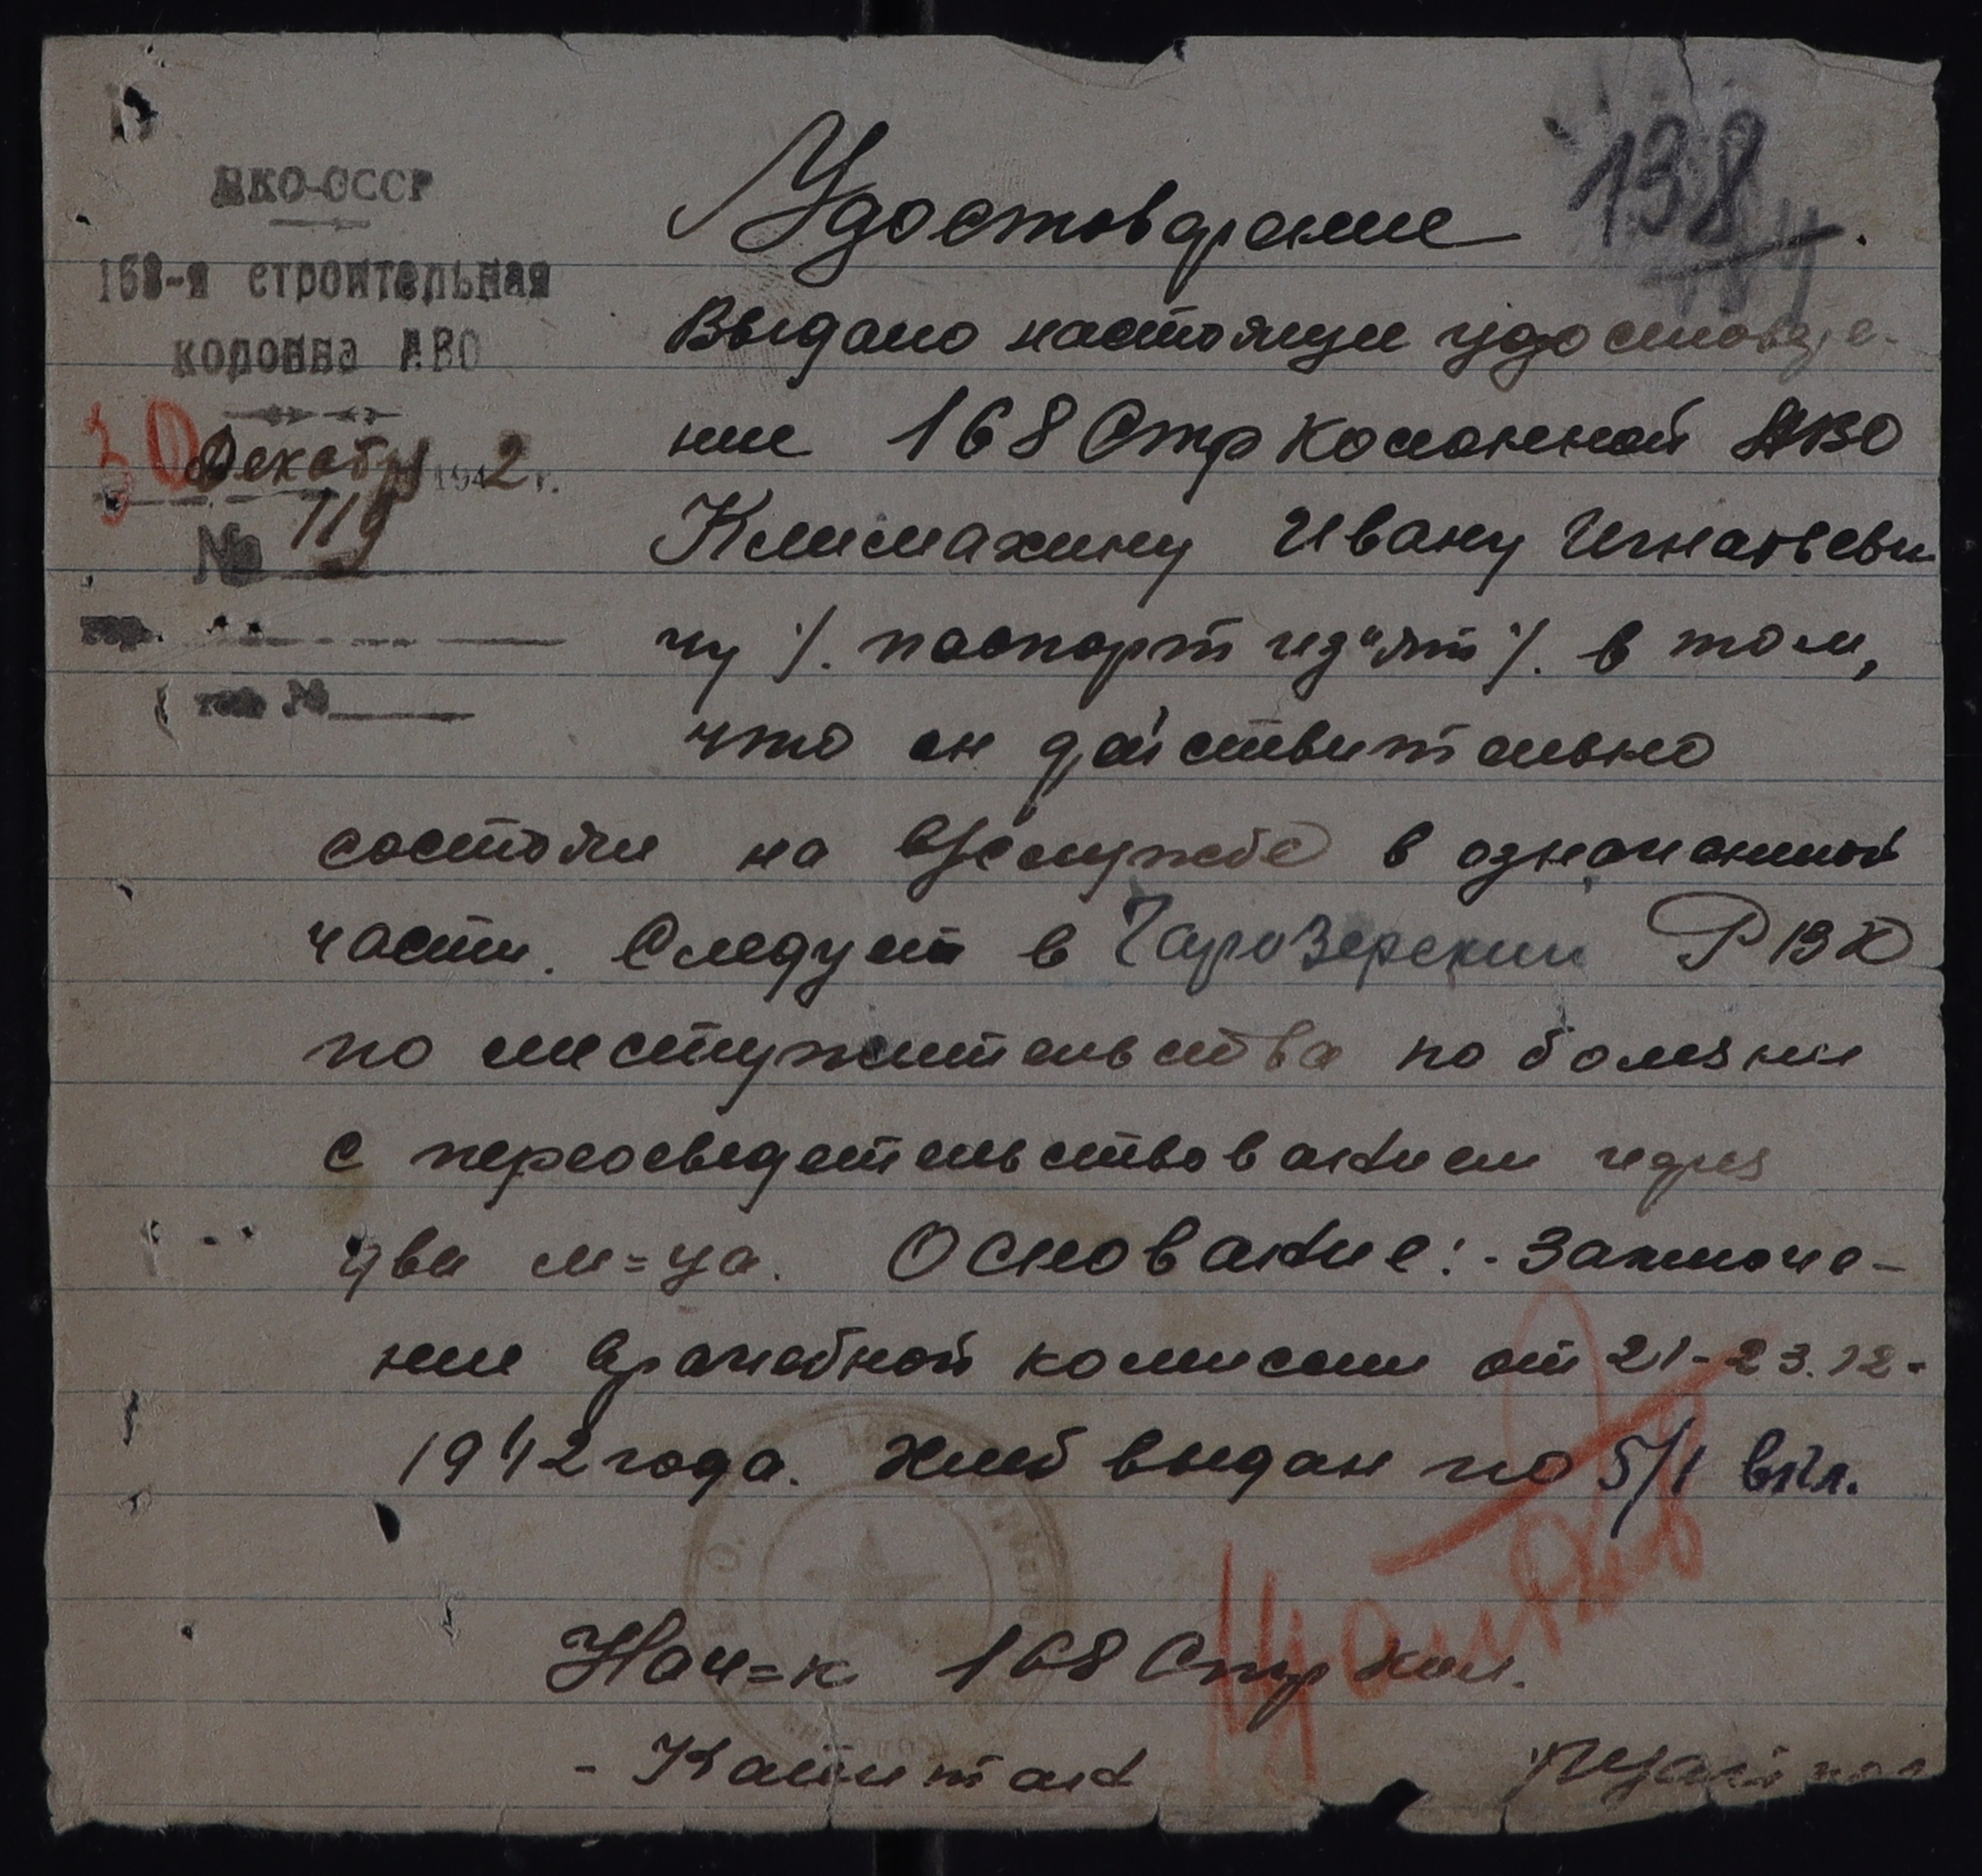 138
НКО-СССР
168-я строительная
колонна АВО
30 Декабря 1942 г.
№ 119
гор.
Удостоверение
Выдано настоящее удостовере-
ние 168 Стр Колонной АВО
Климахину Ивану Игнатьеви
чу /. паспорт из"ят /. в том,
что он действительно
состоял на в/службе в означенной
части. Следует в Чарозерский РВК
по местужительства по болезни
с переосведетельствованием через
два м=ца. Основание:- Заключе-
ние врачебной комиссии от 21-23.12-
1942 года. Хлеб выдан по 5/I вкл.
Нач=к 168 Стр Кол.
- Капитан